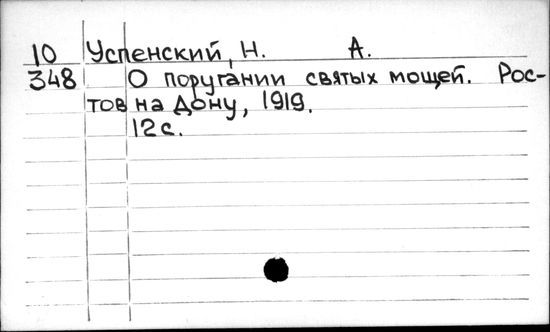 10 Успенский, Н. А.
348 О поругании святых мощей. Рос-
тов на Дону, 1919.
12 с.